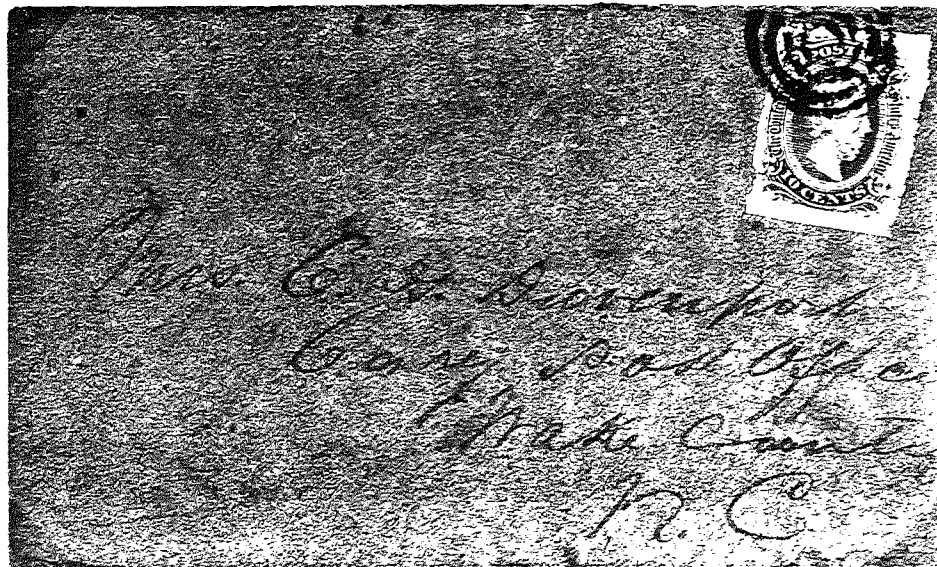 POST
10 CENTS
Mrs. C. A. Davenport
Cary Post Office
Wake County
N. C